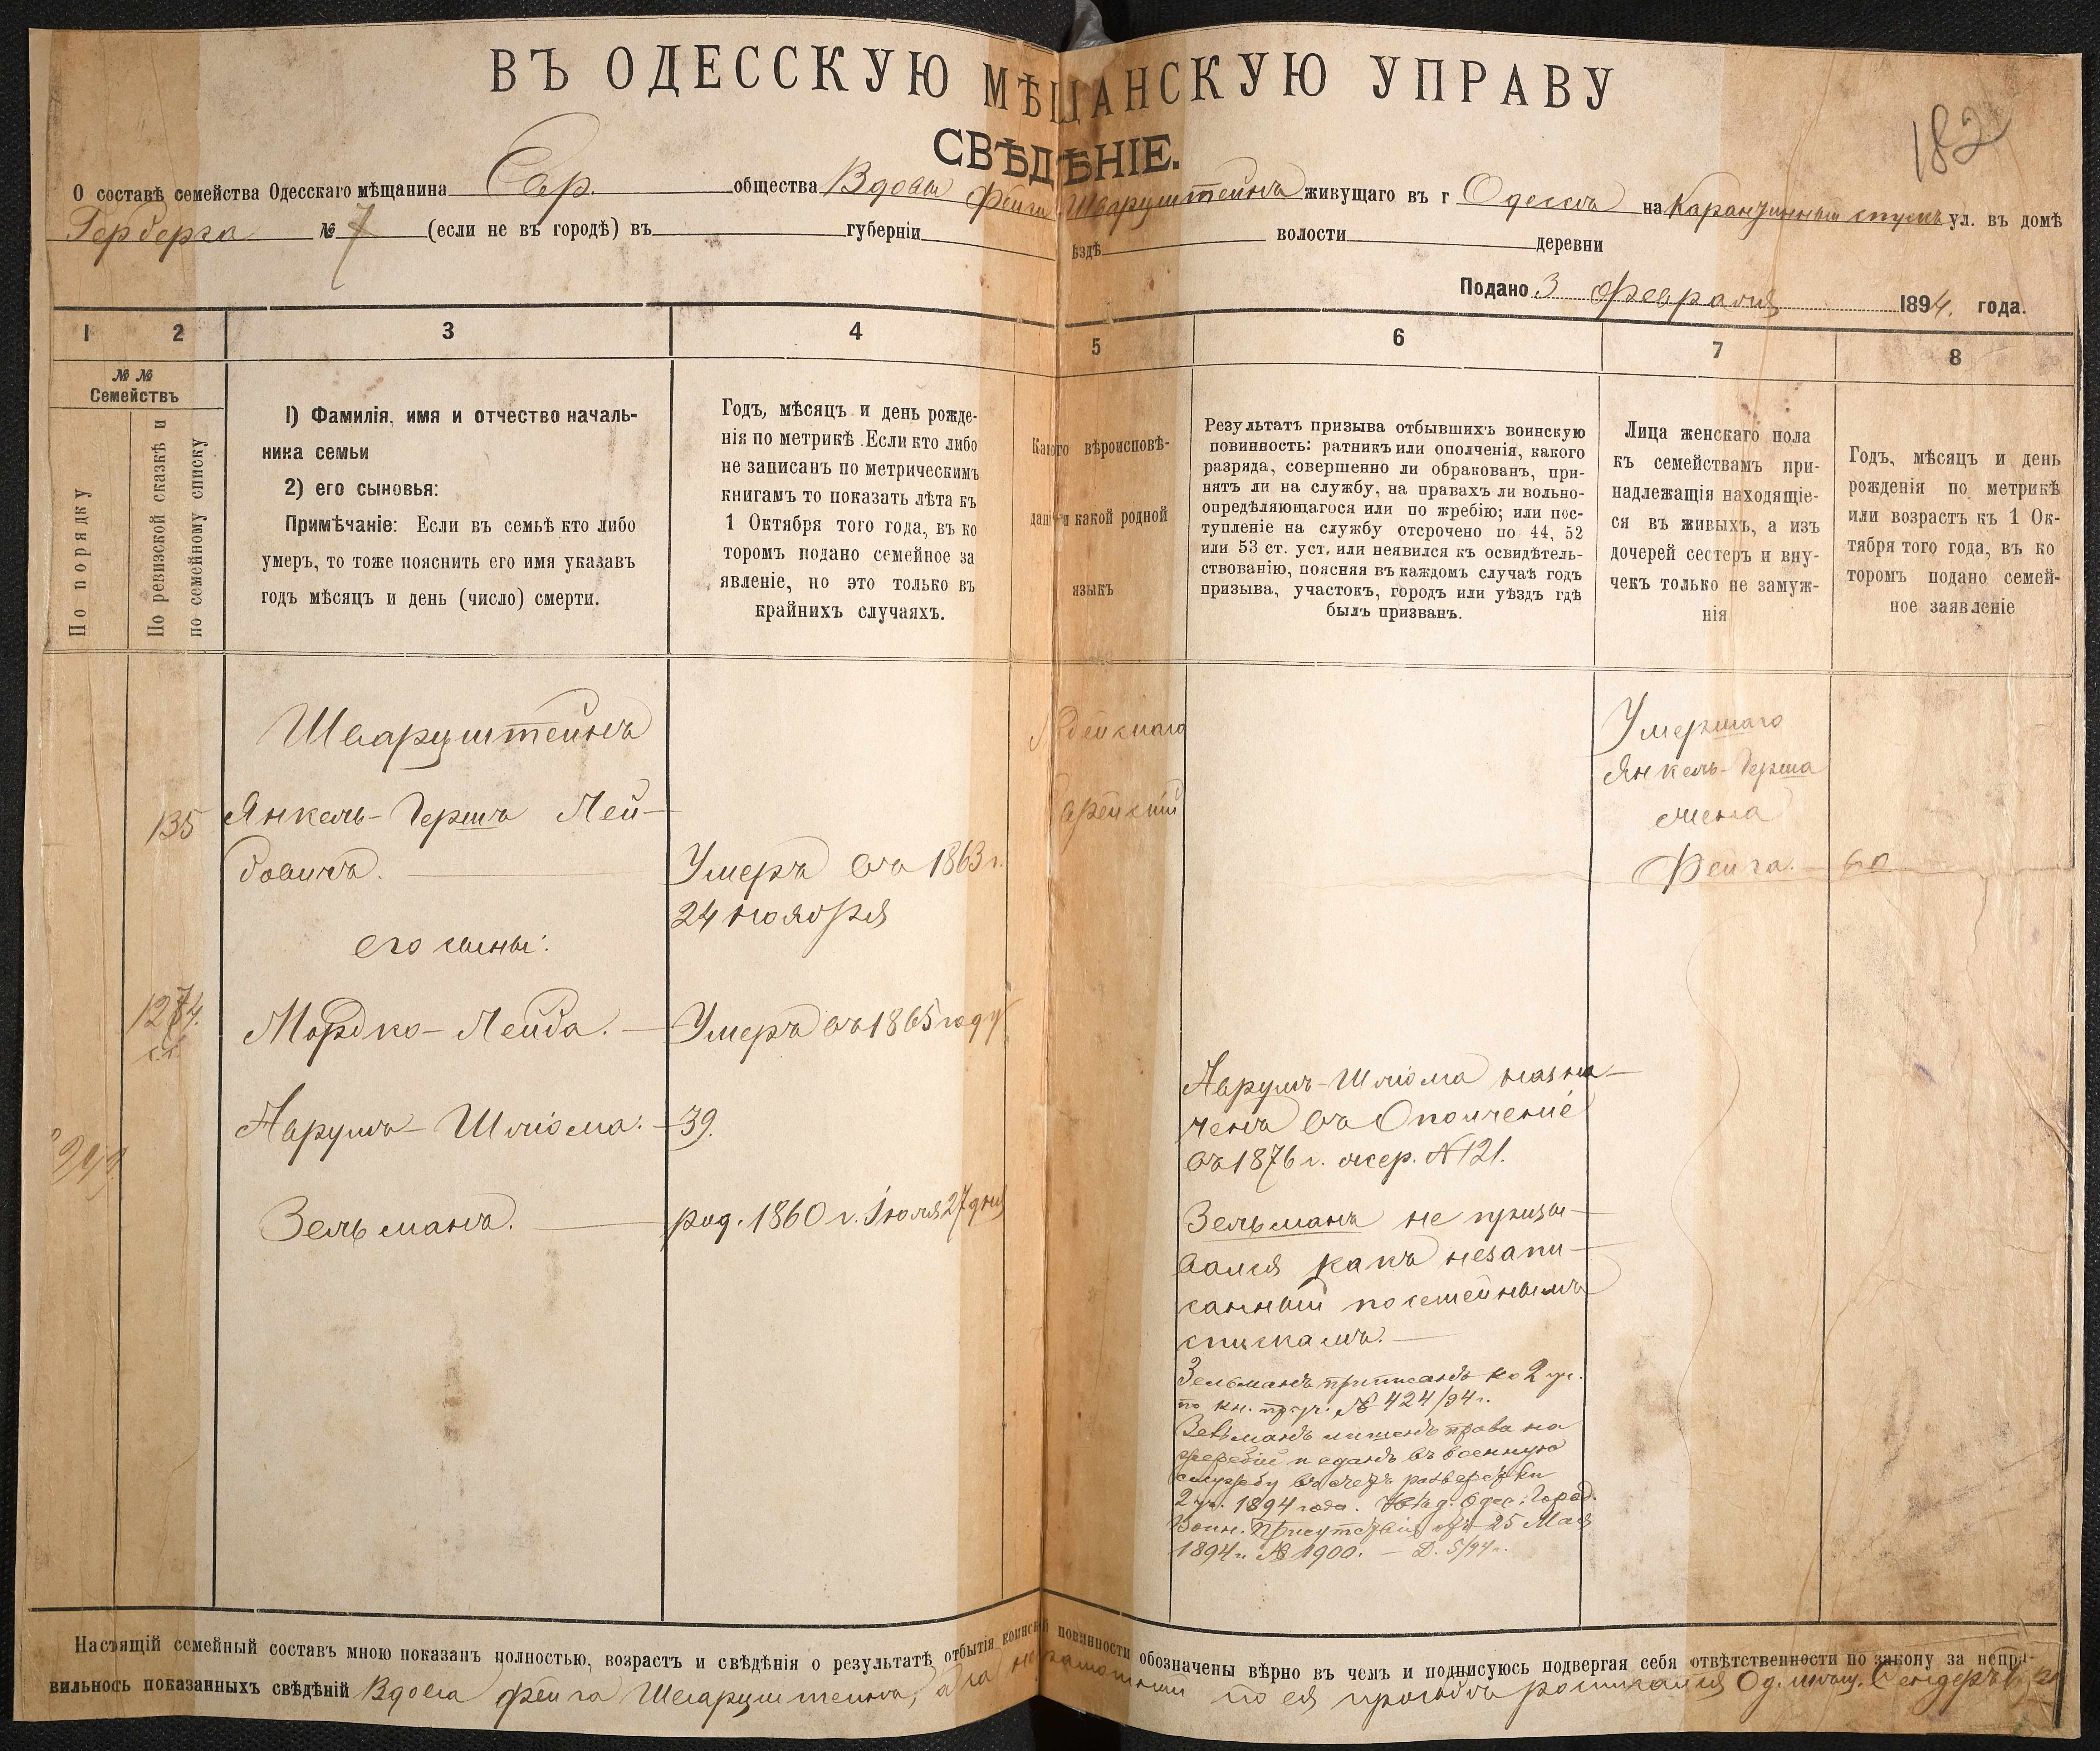 ВЪ ОДЕССКУЮ МѢЩАНСКУЮ УПРАВУ
СВѢДѢНІЕ.
182
О составѣ семейства Одесскаго мѣщанина Евр. общества Вдовы Фейги Шварцштейнъ живущаго въ г Одессѣ на Карантинный спускъ ул. въ домѣ
Герберга № 7 (если не въ городѣ) въ губерніи ѣздѣ волости деревни
Подано 3 Февраля 1894. года.
1 2 3 4 5 6 7 8
№ №
Семействъ
По порядку
По ревизской сказкѣ и
по семейному списку
1) Фамилія, имя и отчество началь-
ника семьи
2) его сыновья:
Примѣчаніе: Если въ семьѣ кто либо
умеръ, то тоже пояснить его имя указавъ
годъ мѣсяцъ и день (число) смерти.
Годъ, мѣсяцъ и день рожде-
нія по метрикѣ. Если кто либо
не записанъ по метрическимъ
книгамъ то показать лѣта къ
1 Октября того года, въ ко
торомъ подано семейное за
явленіе, но это только въ
крайнихъ случаяхъ.
Какого вѣроисповѣ-
данія и какой родной
языкъ
Результатъ призыва отбывшихъ воинскую
повинность: ратникъ или ополченія, какого
разряда, совершенно ли обракованъ, при-
нятъ ли на службу, на правахъ ли вольно-
опредѣляющагося или по жребію; или пос-
тупленіе на службу отсрочено по 44, 52
или 53 ст. уст. или неявился къ освидѣтель-
ствованію, поясняя въ каждомъ случаѣ годъ
призыва, участокъ, городъ или уѣздъ гдѣ
былъ призванъ.
Лица женскаго пола
къ семействамъ при-
надлежащія находящіе-
ся въ живыхъ, а изъ
дочерей сестеръ и вну-
чекъ только не замуж-
нія
Годъ, мѣсяцъ и день
рожденія по метрикѣ
или возрастъ къ 1 Ок-
тября того года, въ ко
торомъ подано семей-
ное заявленіе
Шварцштейнъ
135 Янкель-Гершъ Лей-
бовичъ.
Умеръ въ 1863 г.
24 ноября
его сыны:
Мордко-Лейба. Умеръ въ 1865 году
Аврумъ-Шліома: 39.
Зельманъ. род. 1860 г. Іюля 27 дня
Іудейскаго
Еврейскій
Аврумъ-Шліома назна-
ченъ въ Ополченіе
въ 1876 г. жер. №121.
Зельманъ не призы-
вался какъ незапи-
санный по семейнымъ
спискамъ.
Зельманъ приписанъ ко 2 уч.
по кн. пр. уч. № 424/94 г.
Зельманъ лишенъ права на
жребій и сданъ въ военную
службу въ счетъ разверстки
2 уч. 1894 года. Одес. Город.
Воин. Присутствія отъ 25 Мая
1894 г. № 1900.
Умершаго
Янкель-Герша
жена
Фейга. 60
Настоящій семейный составъ мною показанъ полностью, возрастъ и свѣдѣнія о результатѣ отбытія воинской повинности обозначены вѣрно въ чемъ и подписуюсь подвергая себя отвѣтственности по закону за непра-
вильнось показанныхъ свѣдѣній Вдова Фейга Шварцштейнъ, а за неграмотный по ея просьбѣ росписался Од. мѣщ. Сендеръ